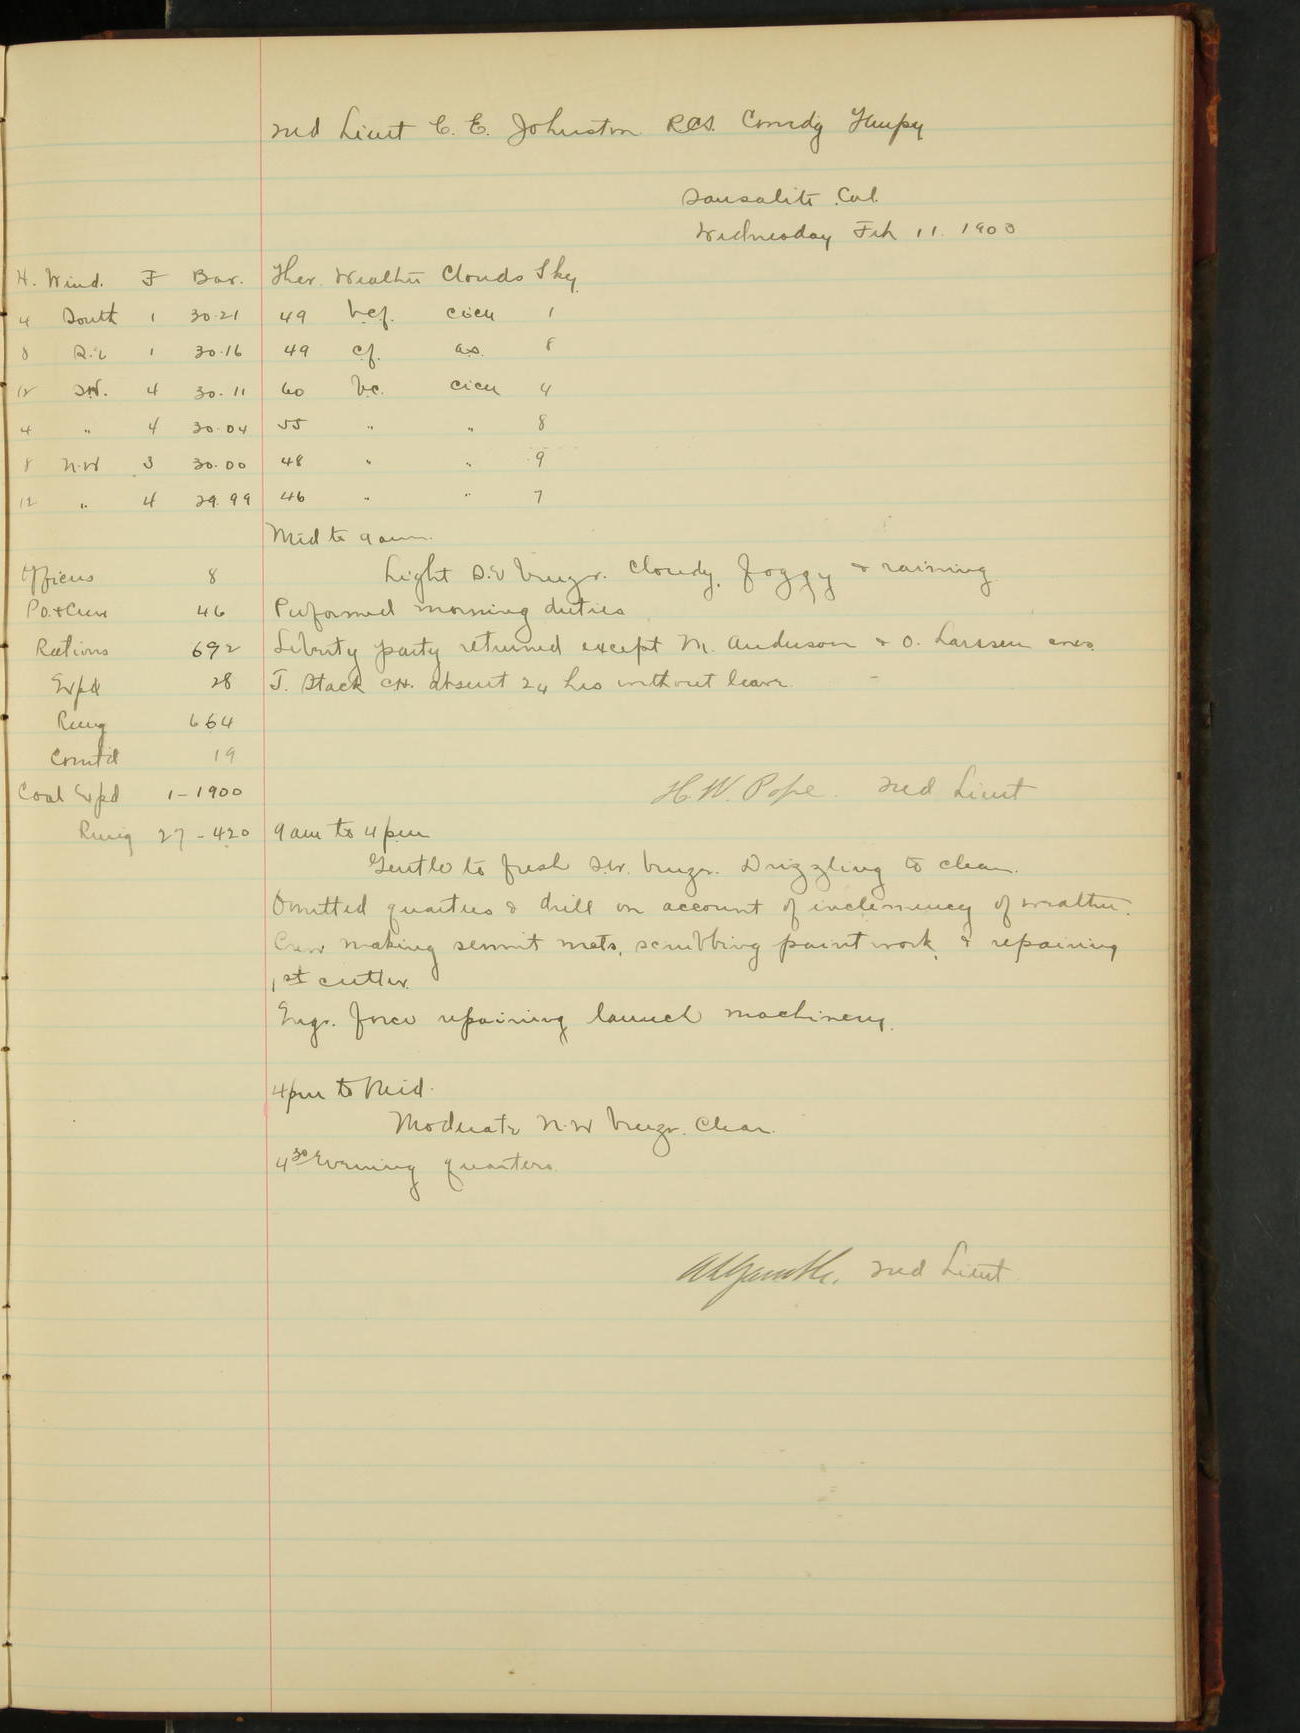 2nd Lieut C. E. Johnston RCS. Comdg Tempy
Sausalito Cal.
Wednesday Feb 11. 1903
H. Wind. F Bar. Ther. Weather Clouds Sky
4 South 1 30.21 49 bcf. cicu 1
8 S.E 1 30.16 49 cf. as. 8
12 SW. 4 30.11 60 bc. cicu 4
4 " 4 30.04 55 " " 8
8 N.W 3 30.00 48 " " 9
12 " 4 29.99 46 " " 7
Mid to 9 am.
Officers 8 Light S.E breeze. Cloudy, foggy & raining
P.O.&Crew 46 Performed morning duties
Rations 692 Liberty party returned except M. Anderson & O. Larssen
Expd 28 J. Stack CH. absent 24 hrs without leave.
Remg 664
Comtd 19
Coal Expd 1-1900 H. W. Pope. 2nd Lieut
Remg 27-420 9 am to 4 pm
Gentle to fresh S.W. breeze. Drizzling to clear.
Omitted quarters & drill on account of inclemency of weather.
Crew making sennit mats, scrubbing paint work, & repairing
1st cutter.
Engr. force repairing launch machinery.
4pm to Mid.
Moderate N.W breeze. Clear.
4 30 Evening quarters.
2nd Lieut